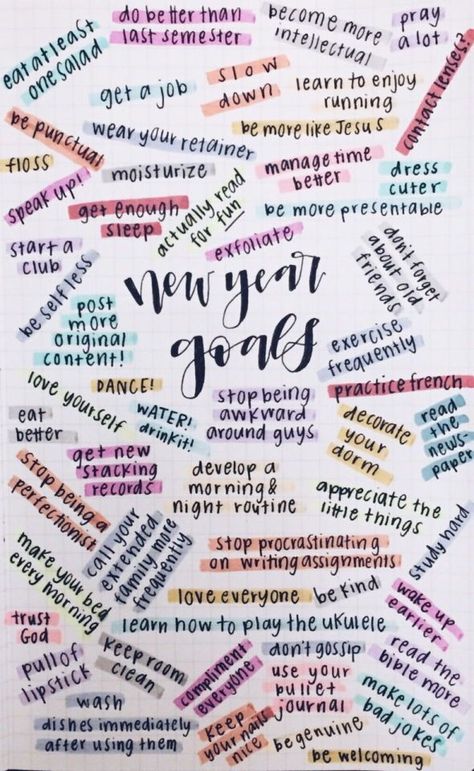 eat at least
one salad
do better than
last semester
become more
intellectual
pray
a lot
get a job
slow
down
learn to enjoy
running
contact lenses?
be punctual
wear your retainer
be more like Jesus
floss
moisturize
manage time
better
dress
cuter
speak up!
get enough
sleep
actually read
for fun
be more presentable
start a
club
exfoliate
don't forget
about old
friends
be self less
new year
goals
post
more
original
content!
exercise
frequently
love yourself
DANCE!
practice french
eat
better
WATER!
drink it!
stop being
awkward
around guys
decorate
your
dorm
read
the
news
paper
get new
stacking
records
stop being a
perfectionist
develop a
morning &
night routine
appreciate the
little things
call your
extended
family more
frequently
study hard
stop procrastinating
on writing assignments
make your bed
every morning
love everyone
be kind
wake up
earlier
trust
God
learn how to play the ukulele
pull of
lipstick
keep room
clean
compliment
everyone
don't gossip
read the
bible more
use your
bullet
journal
make lots of
bad jokes
wash
dishes immediately
after using them
keep
your nails
nice
be genuine
be welcoming